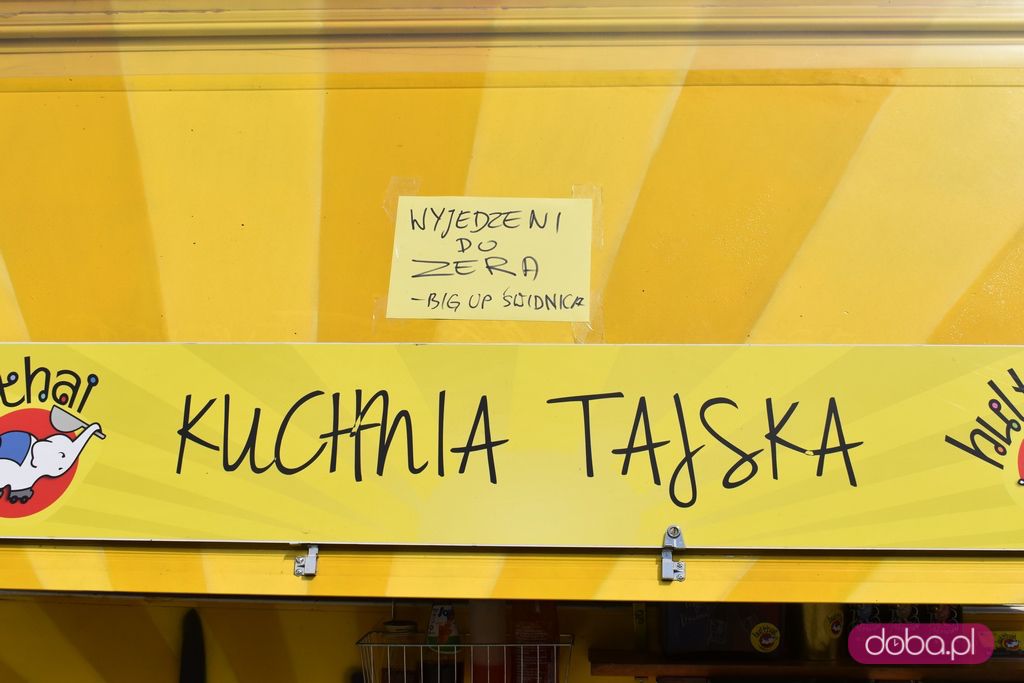 WYJEDZENI
DO
ZERA
-BIG UP ŚWIDNICA
thai
KUCHNIA TAJSKA
doba.pl